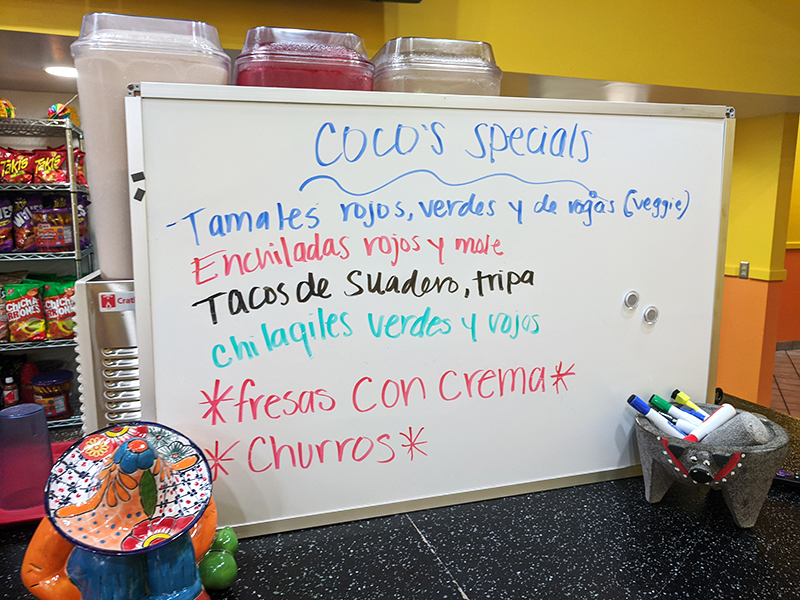 Coco's specials
-Tamales rojos, verdes y de rajas (veggie)
Enchiladas rojos y mole
Tacos de Suadero, tripa
chilaqiles verdes y rojos
*fresas con crema*
*Churros*
Takis
Takis
CHICHA
RONES
CHICHA
RONES
Crath